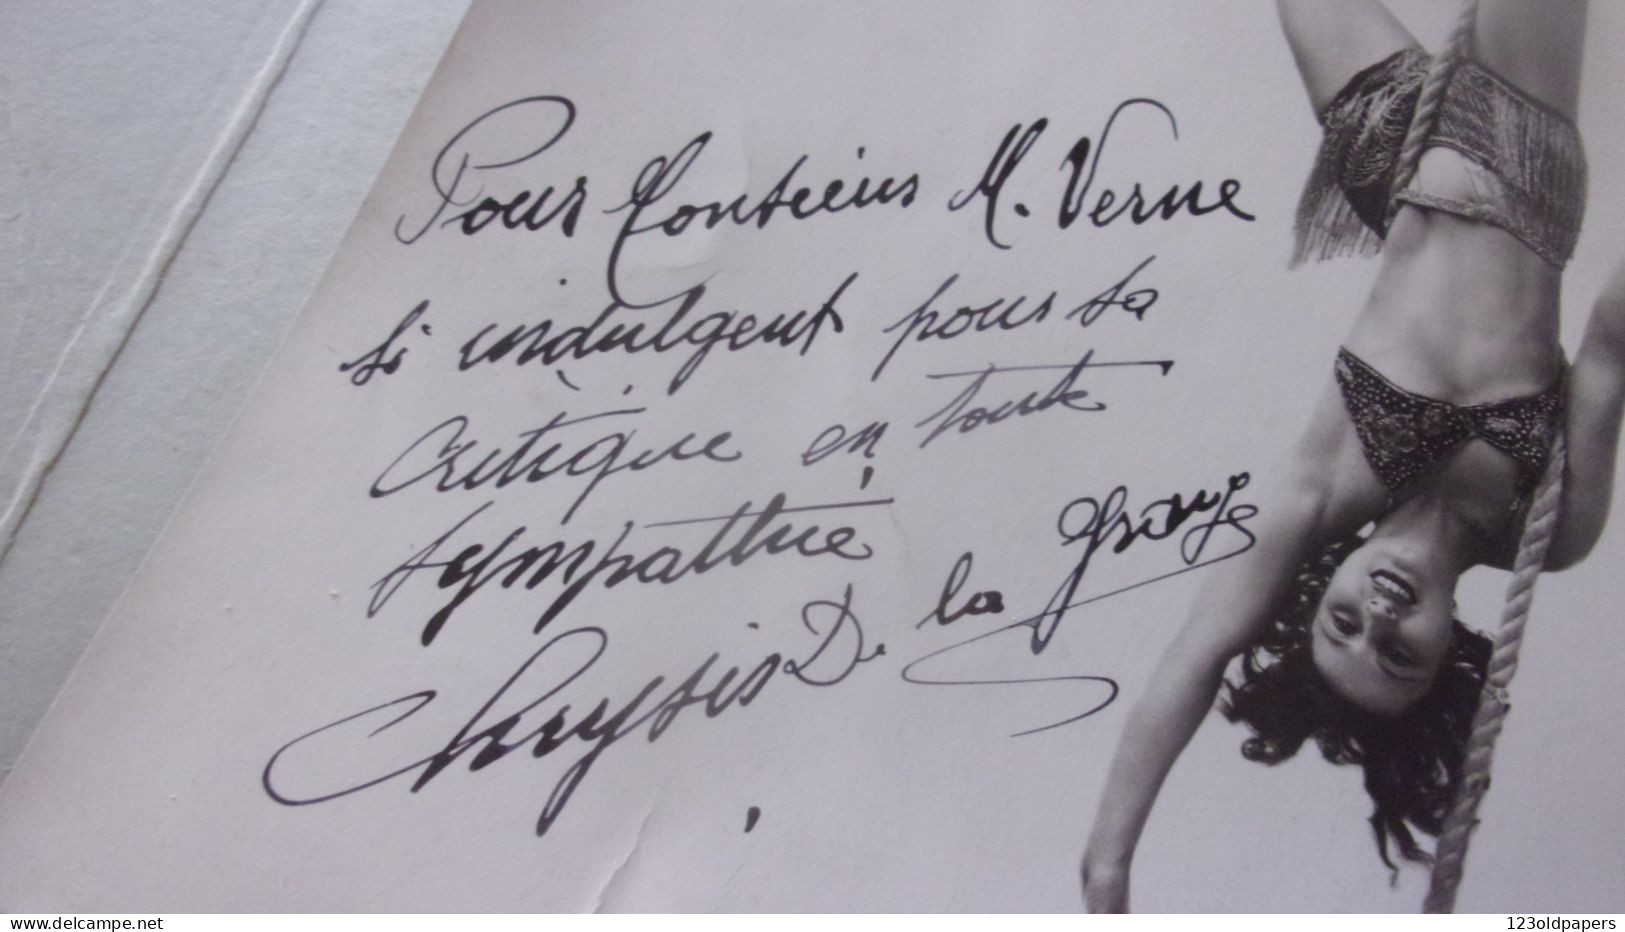 Pour Monsieur M. Verne
si indulgent pour sa
critique en toute
sympathie
Chrysis De la Grange
www.delcampe.net
123oldpapers